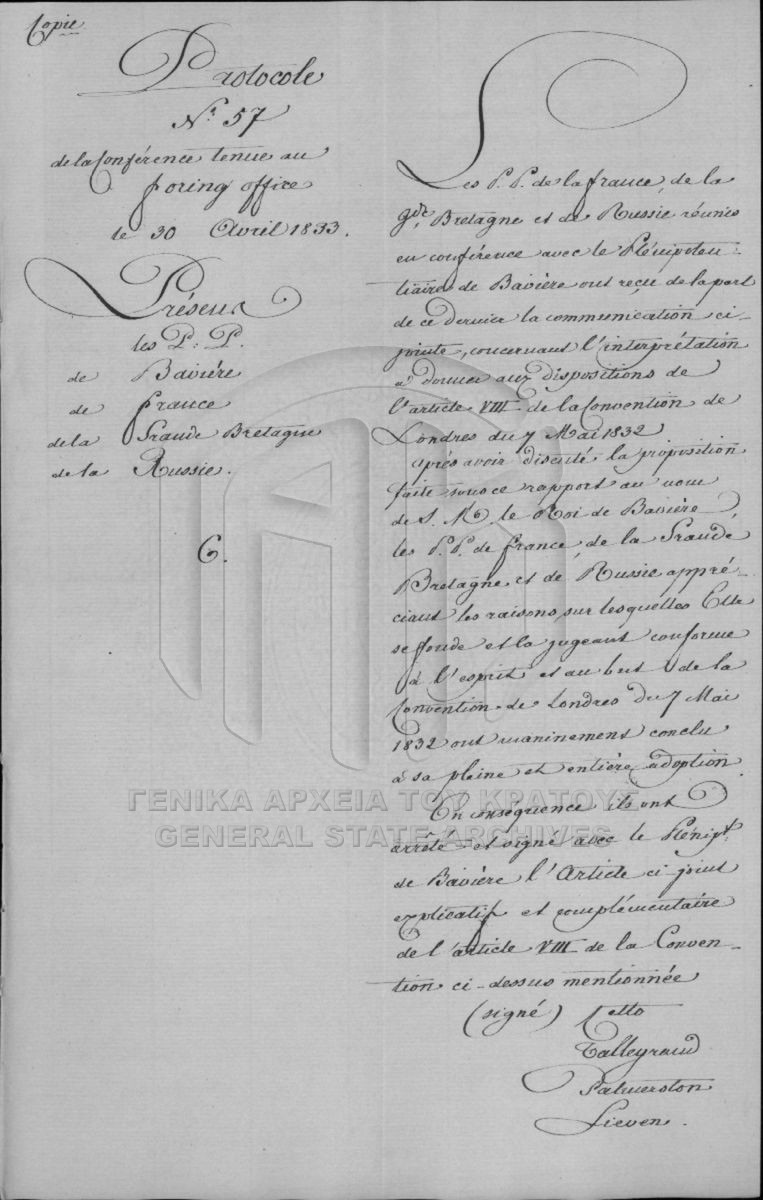 Copie
Protocole
Nº 57
de la Conférence tenue au
foring office
le 30 Avril 1833.
Présens
les P. P.
de Bavière
de france
de la Grande Bretagne
de la Russie.
C.
Les P. P. de la france, de la
gde. Bretagne et de Russie réunis
en conférence avec le Plénipoten-
tiaire de Bavière ont reçu de la part
de ce dernier la communication ci-
jointe, concernant l'interprétation
à donner aux dispositions de
l'article VIII de la Convention de
Londres du 7 Mai 1832
après avoir discuté la proposition
faite sous ce rapport au nom
de S. M. le Roi de Bavière,
les P. P. de france, de la Grande
Bretagne et de Russie appré-
ciant les raisons, sur lesquelles Elle
se fonde et la jugeant conforme
à l'esprit et au but de la
Convention de Londres du 7 Mai
1832 ont unaninement conclu
à sa pleine et entière adoption
En conséquence ils ont
arrêté et signé avec le Plénipt.
de Bavière l'Article ci-joint
explicatif et complémentaire
de l'article VIII de la Conven-
tion ci-dessus mentionnée
(signé) Cetto
Talleyrand
Palmerston
Lieven.
ΓΕΝΙΚΑ ΑΡΧΕΙΑ ΤΟΥ ΚΡΑΤΟΥΣ
GENERAL STATE ARCHIVES